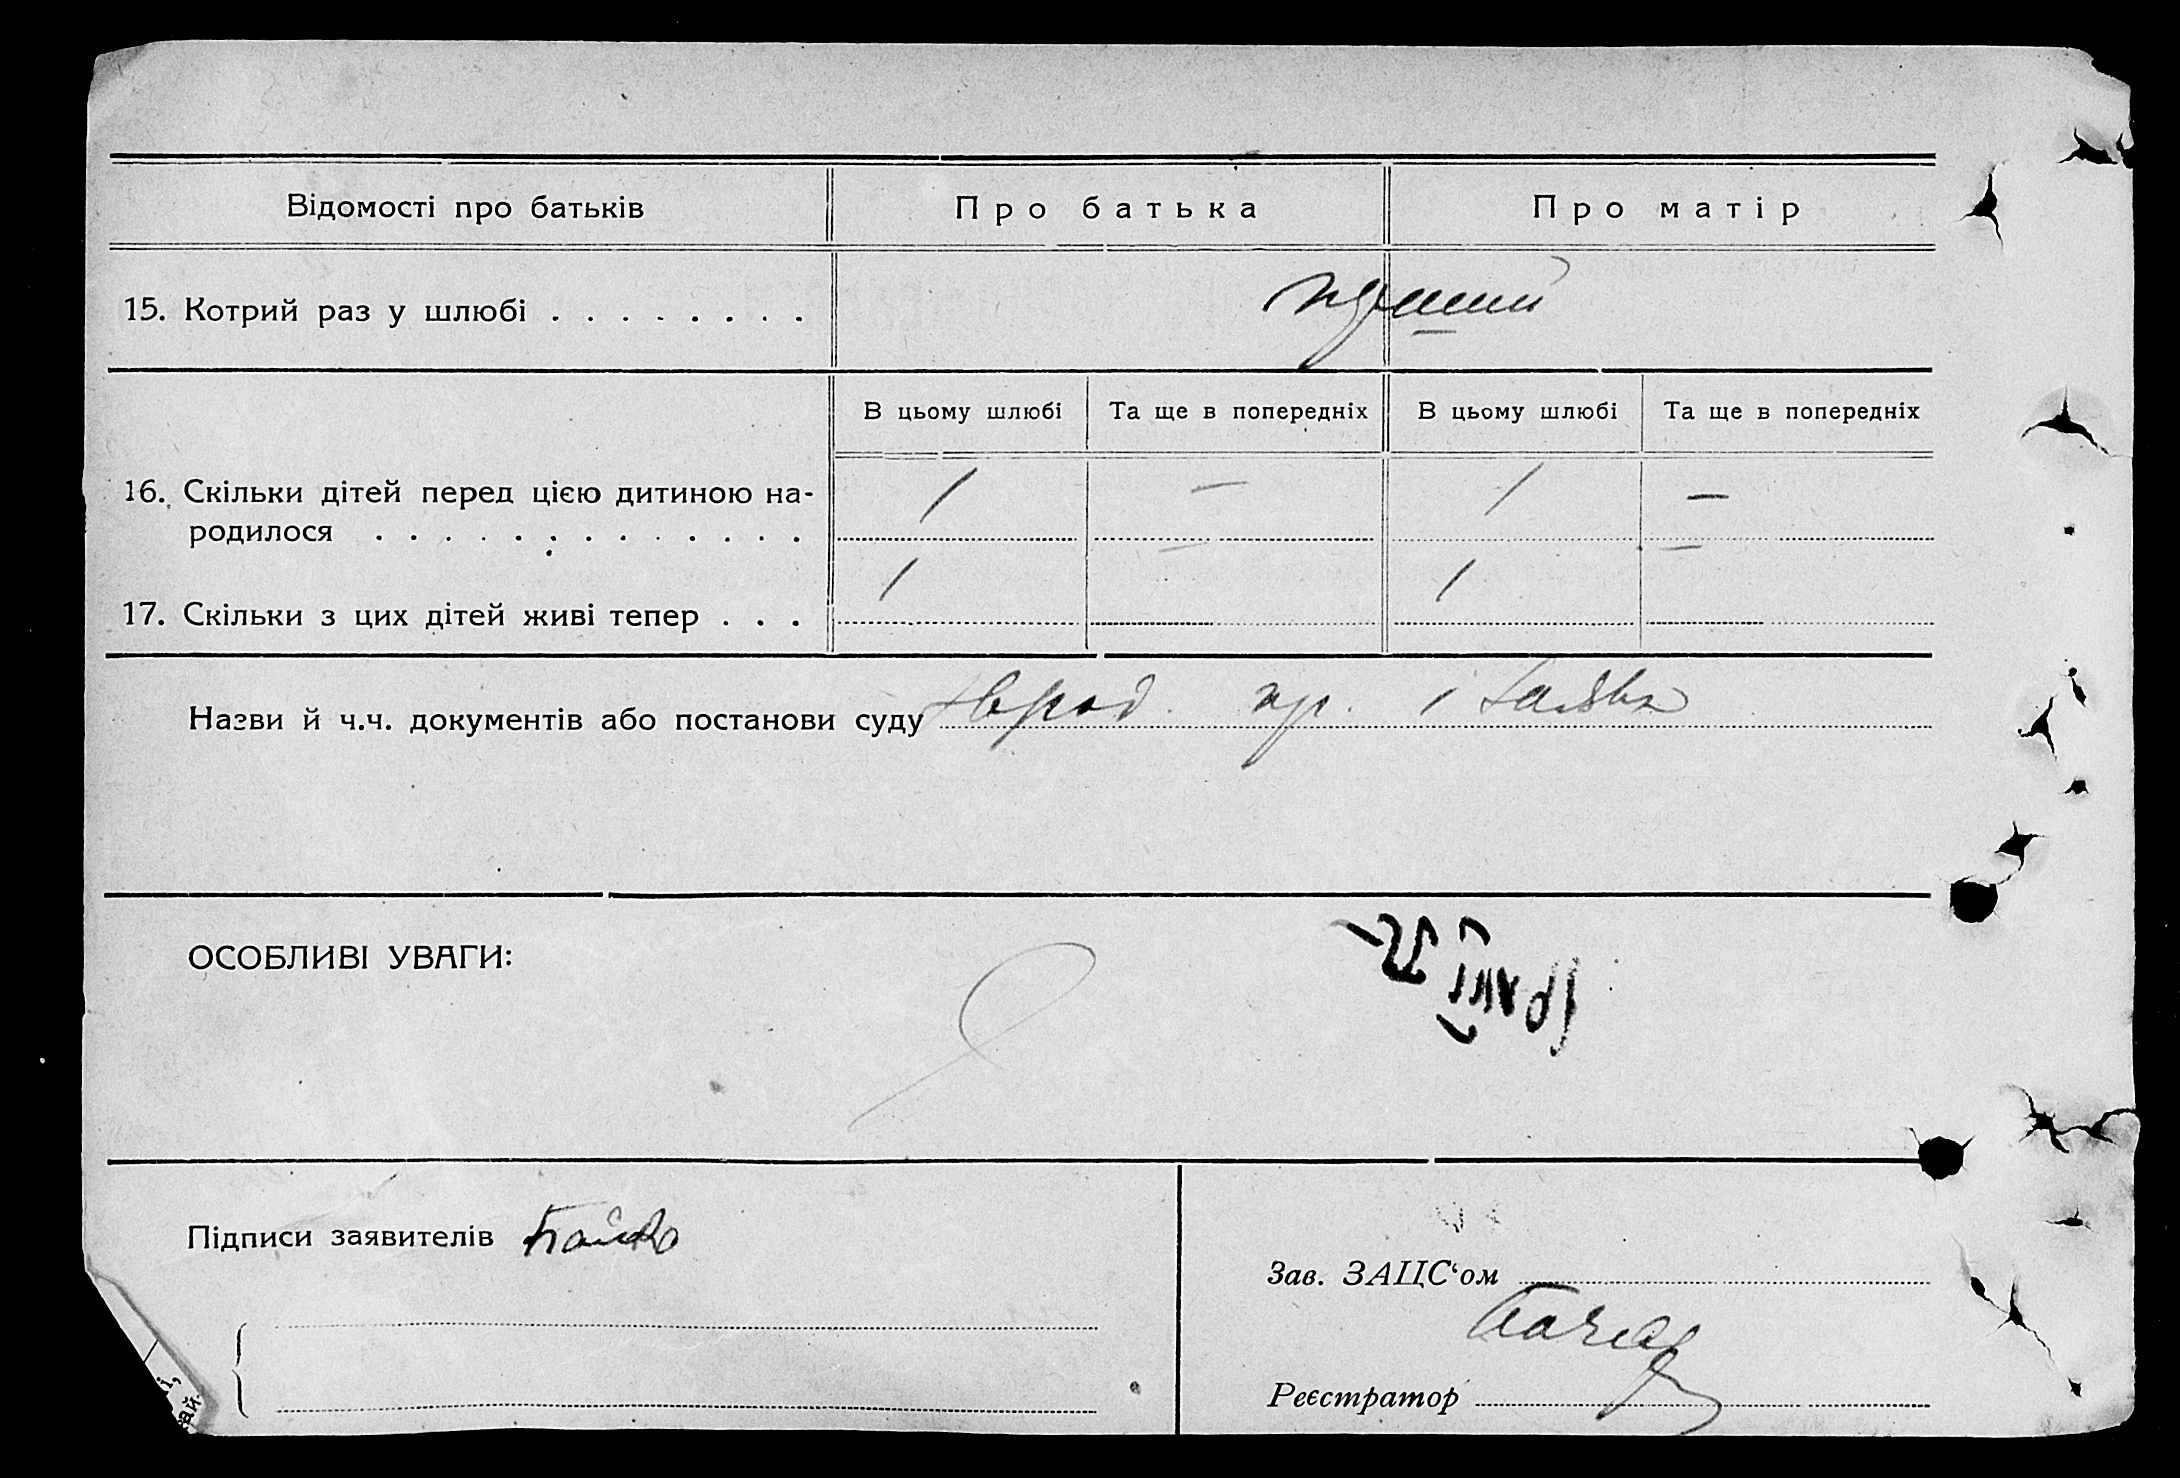 Відомості про батьків
Про батька
Про матір
15. Котрий раз у шлюбі . . . . . . . .
перший
В цьому шлюбі
Та ще в попередніх
В цьому шлюбі
Та ще в попередніх
16. Скільки дітей перед цією дитиною на-
родилося . . . . . . . . . . . . .
1 — 1 —
17. Скільки з цих дітей живі тепер . . .
1 — 1 —
Назви й ч.ч. документів або постанови суду
пр. і заява
ОСОБЛИВІ УВАГИ:
Підписи заявителів
Зав. ЗАЦС‘ом
Реєстратор
і,
ай.